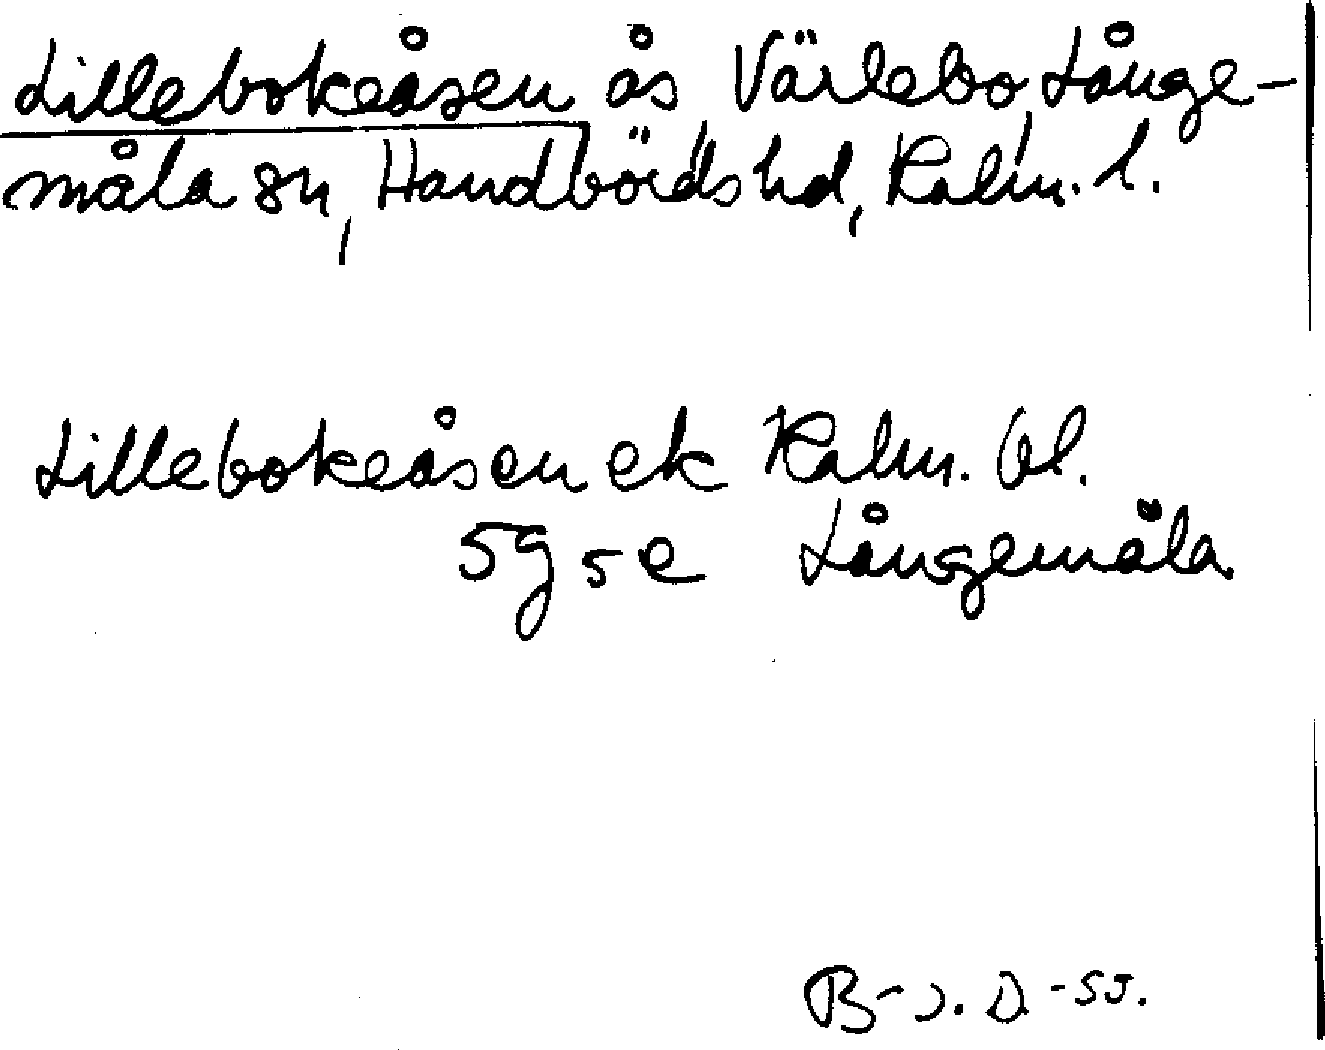 Lillebokeåsen ås Värlebo, Långe-
måla sn, Handbörds hd, Kalm. l.
Lillebokeåsen ek Kalm. bl.
5g5e Långemåla
B-J. D. -55.